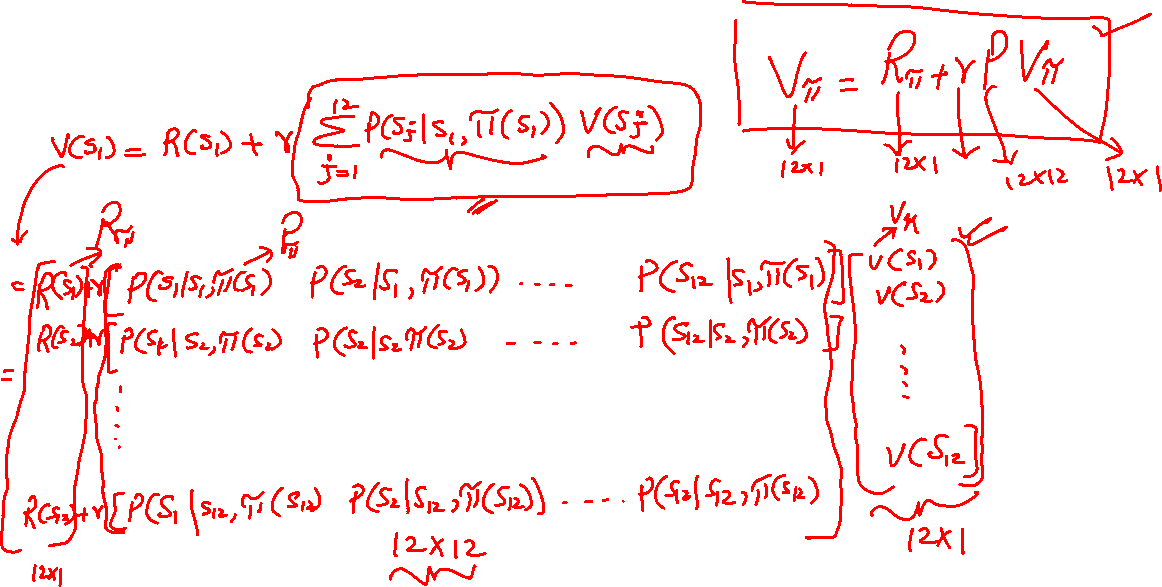 V_π = R_π + γ P V_π
12x1 12x1 12x12 12x1
V(S₁) = R(S₁) + γ ∑_{j=1}^{12} P(Sj|S₁,π(S₁)) V(Sj)
R_π P_π V_π
= R(S₁)+γ [ P(S₁|S₁,π(S₁) P(S₂|S₁,π(S₁)) .... P(S₁₂|S₁,π(S₁) ] [ V(S₁)
V(S₂)
R(S₂)+γ [ P(S₁|S₂,π(S₂) P(S₂|S₂π(S₂) .... P(S₁₂|S₂,π(S₂) ]
=
V(S₁₂]
R(S₁₂)+γ [P(S₁|S₁₂,π(S₁₂) P(S₂|S₁₂,π(S₁₂)) .... P(S₁₂|S₁₂,π(S₁₂)
12x1 12x12 12x1